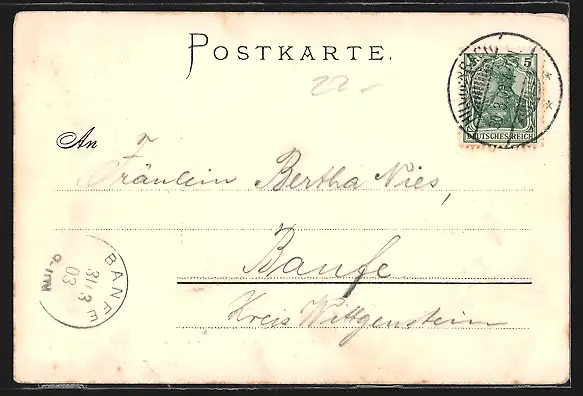 POSTKARTE.
22-
5
DEUTSCHES REICH
An
Fräulein Bertha Nies,
Banfe
Kreis Wittgenstein
BANFE
31.3
03